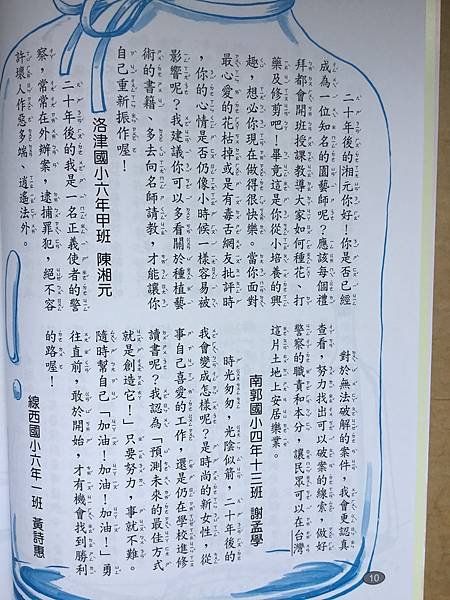 二十年後的湘元你好!你是否已經
成為一位知名的園藝師呢?應該每個禮
拜都會開班授課教導大家如何種花、打
藥及修剪吧!畢竟這是你從小培養的興
趣,想必你現在做得很快樂。當你面對
最心愛的花枯掉或是有毒舌網友批評時
,你的心情是否仍像小時候一樣容易被
影響呢?我建議你可以多看關於種植藝
術的書籍、多去向名師請教,才能讓你
自己重新振作喔!
洛津國小六年甲班 陳湘元
二十年後的我是一名正義使者的警
察,常常在外辦案,逮捕罪犯,絕不容
許壞人作惡多端、逍遙法外。
對於無法破解的案件,我會更認真
查看,努力找出可以破案的線索,做好
警察的職責和本分,讓民眾可以在台灣
這片土地上安居樂業。
南郭國小四年十三班 謝孟學
時光匆匆,光陰似箭,二十年後的
我會變成怎樣呢?是時尚的新女性,從
事自己喜愛的工作,還是仍在學校進修
讀書呢?我認為「預測未來的最佳方式
就是創造它!」只要努力,事就不難。
隨時幫自己「加油!加油!加油!」勇
往直前,敢於開始,才有機會找到勝利
的路喔!
線西國小六年一班 黃詩惠
10